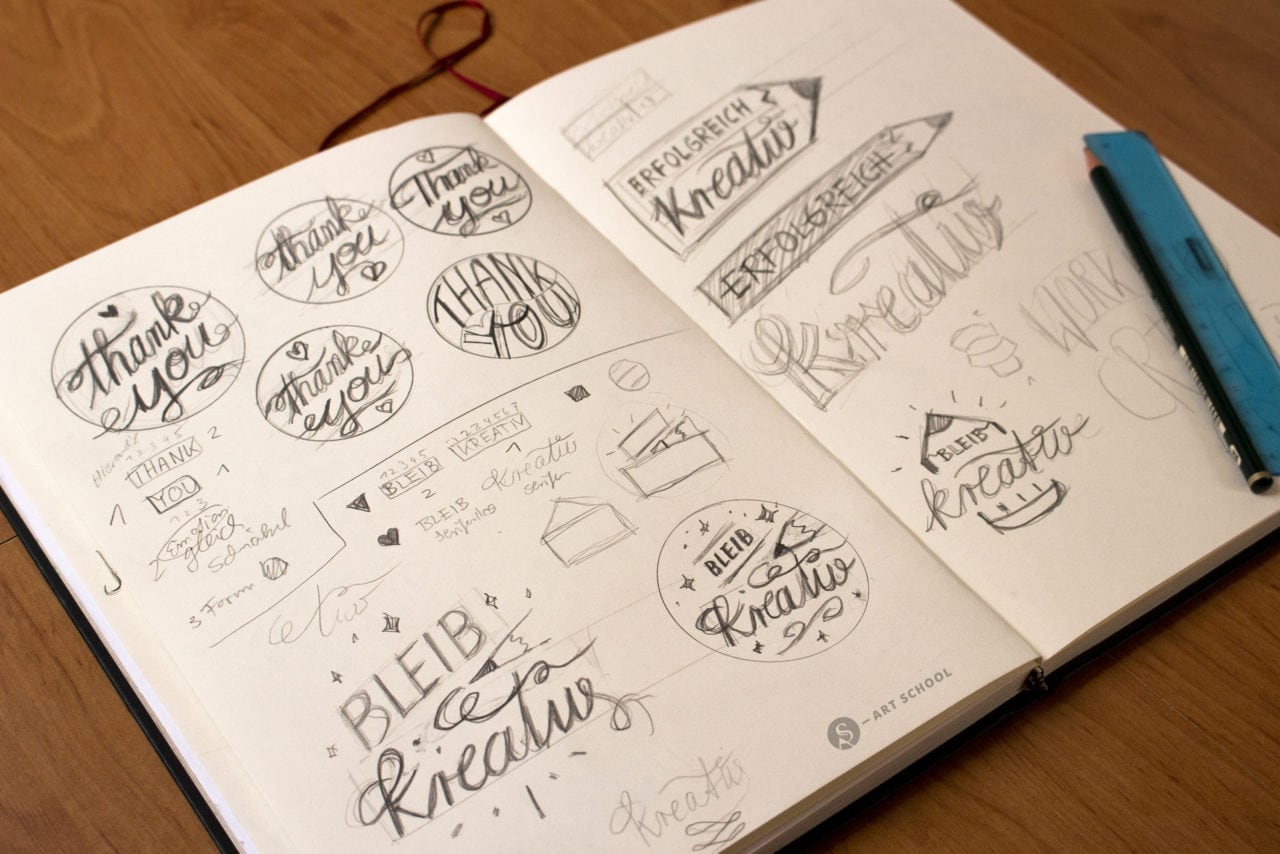 thank
you
thank
you
Thank
you
thank
you
THANK
YOU
1 2 3 4 5
THANK 2
1 YOU 1
1 2 3
Emotion
2 gleich
Schnörkel
3 Form
1 2 3 4 5
BLEIB
2
1 2 3 4 5 6 7
KREATIV
1
BLEIB
serifenlos
Kreativ
serifen
BLEIB
Kreativ
BLEIB
Kreativ
Kreativ
ERFOLGREICH
Kreativ
ERFOLGREICH
Kreativ
WORK
BLEIB
kreativ
S – ART SCHOOL